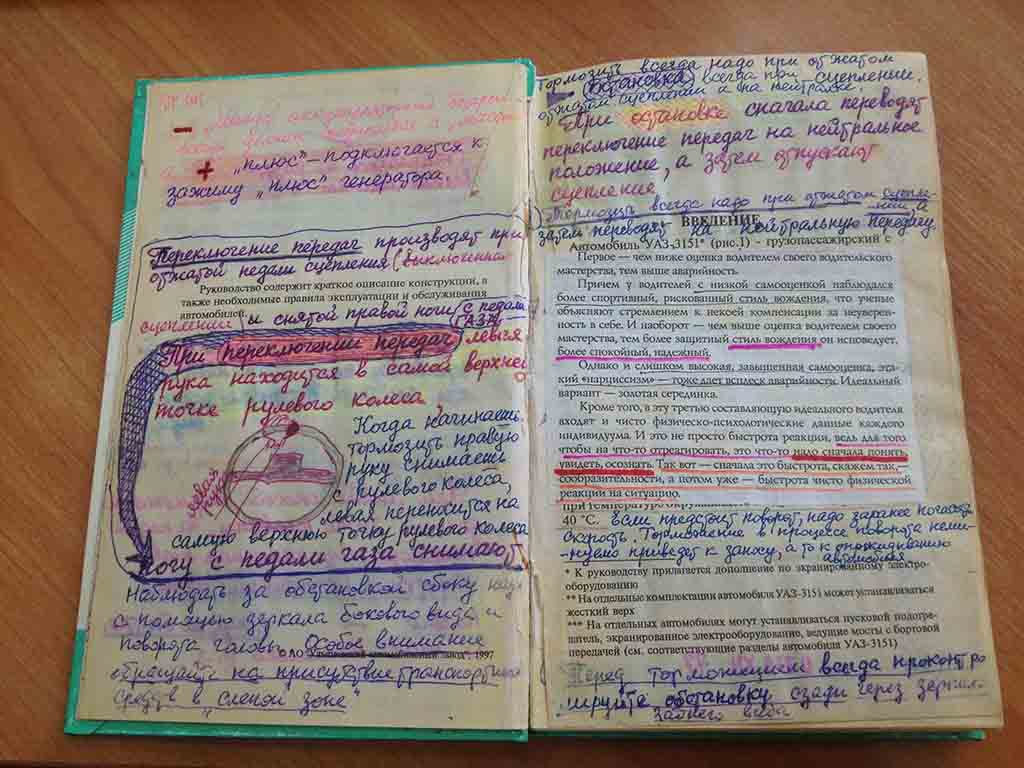 "плюс" – подключается к
зажиму "плюс" генератора.
Переключение передач производят при
отжатой педали сцепления (выключенном
Руководство содержит краткое описание конструкции, а
также необходимые правила эксплуатации и обслуживания
автомобилей.
сцеплении) и снятой правой ноги с педали
ГАЗА
При (переключении передач) левая
рука находится в самой верхней
точке рулевого колеса.
Когда начинаешь
тормозить правую
руку снимаешь
с рулевого колеса,
левая переносится на
самую верхнюю точку рулевого колеса
ногу с педали газа снимают
левая
рука
Наблюдать за обстановкой сбоку
с помощью зеркала бокового вида и
поворота головы. Особое внимание
автомобильный завод", 1997
обращайте на присутствие транспортных
средств в "слепой зоне"
Тормозить всегда надо при отжатом
(остановка) всегда при сцеплении.
отжатом сцеплении и на нейтралке.
При остановке сначала переводят
переключение передач на нейтральное
положение, а затем отпускают
сцепление
Тормозить всегда надо при отжатом сцепле-
нии а
ВВЕДЕНИЕ
затем переводят на нейтральную передачу
Автомобиль УАЗ-3151* (рис.1) - грузопассажирский с
Первое — чем ниже оценка водителем своего водительского
мастерства, тем выше аварийность.
Причем у водителей с низкой самооценкой наблюдался
более спортивный, рискованный стиль вождения, что ученые
объясняют стремлением к некоей компенсации за неуверен-
ность в себе. И наоборот — чем выше оценка водителем своего
мастерства, тем более защитный стиль вождения он исповедует,
более спокойный, надежный.
Однако и слишком высокая, завышенная самооценка, эта-
кий «нарциссизм» — тоже дает всплеск аварийности. Идеальный
вариант — золотая серединка.
Кроме того, в эту третью составляющую идеального водителя
входят и чисто физическо-психологические данные каждого
индивидума. И это не просто быстрота реакции, ведь для того
чтобы на что-то отреагировать, это что-то надо сначала понять,
увидеть, осознать. Так вот — сначала это быстрота, скажем так,
сообразительности, а потом уже — быстрота чисто физической
реакции на ситуацию.
при температуре окружающего
40 °С. Если предстоит поворот, надо заранее погасить
скорость. Торможение в процессе поворота неми-
нуемо приведет к заносу, а то к опрокидыванию
автомобиля
* К руководству прилагается дополнение по экранированному электро-
оборудованию
** На отдельные комплектации автомобиля УАЗ-3151 может устанавливаться
жесткий верх
*** На отдельных автомобилях могут устанавливаться пусковой подогре-
ватель, экранированное электрооборудование, ведущие мосты с бортовой
передачей (см. соответствующие разделы автомобиля УАЗ-3151)
Перед торможением всегда проконтро-
лируйте обстановку сзади через зеркало
заднего вида